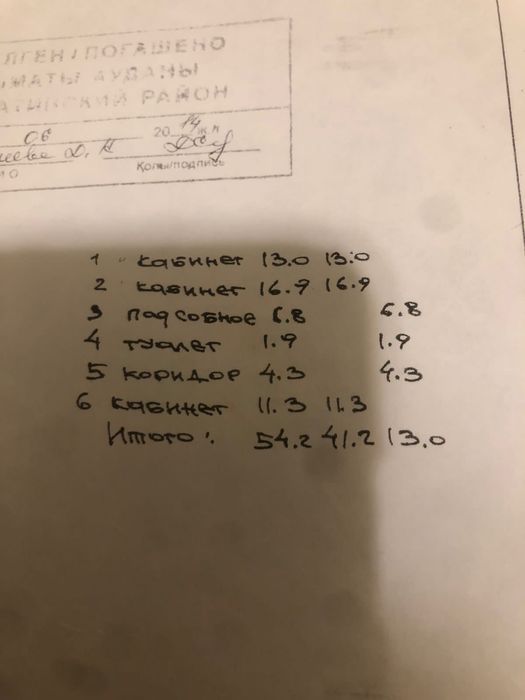 ЛГЕН/ПОГАШЕНО
МАТЫ АУДАНЫ
АТИНСКИЙ РАЙОН
06 2014 ж
Д. Қолы/подпись
1 кабинет 13.0 13.0
2 кабинет 16.9 16.9
3 подсобное 6.8 6.8
4 туалет 1.9 1.9
5 коридор 4.3 4.3
6 кабинет 11.3 11.3
Итого: 54.2 41.2 13.0